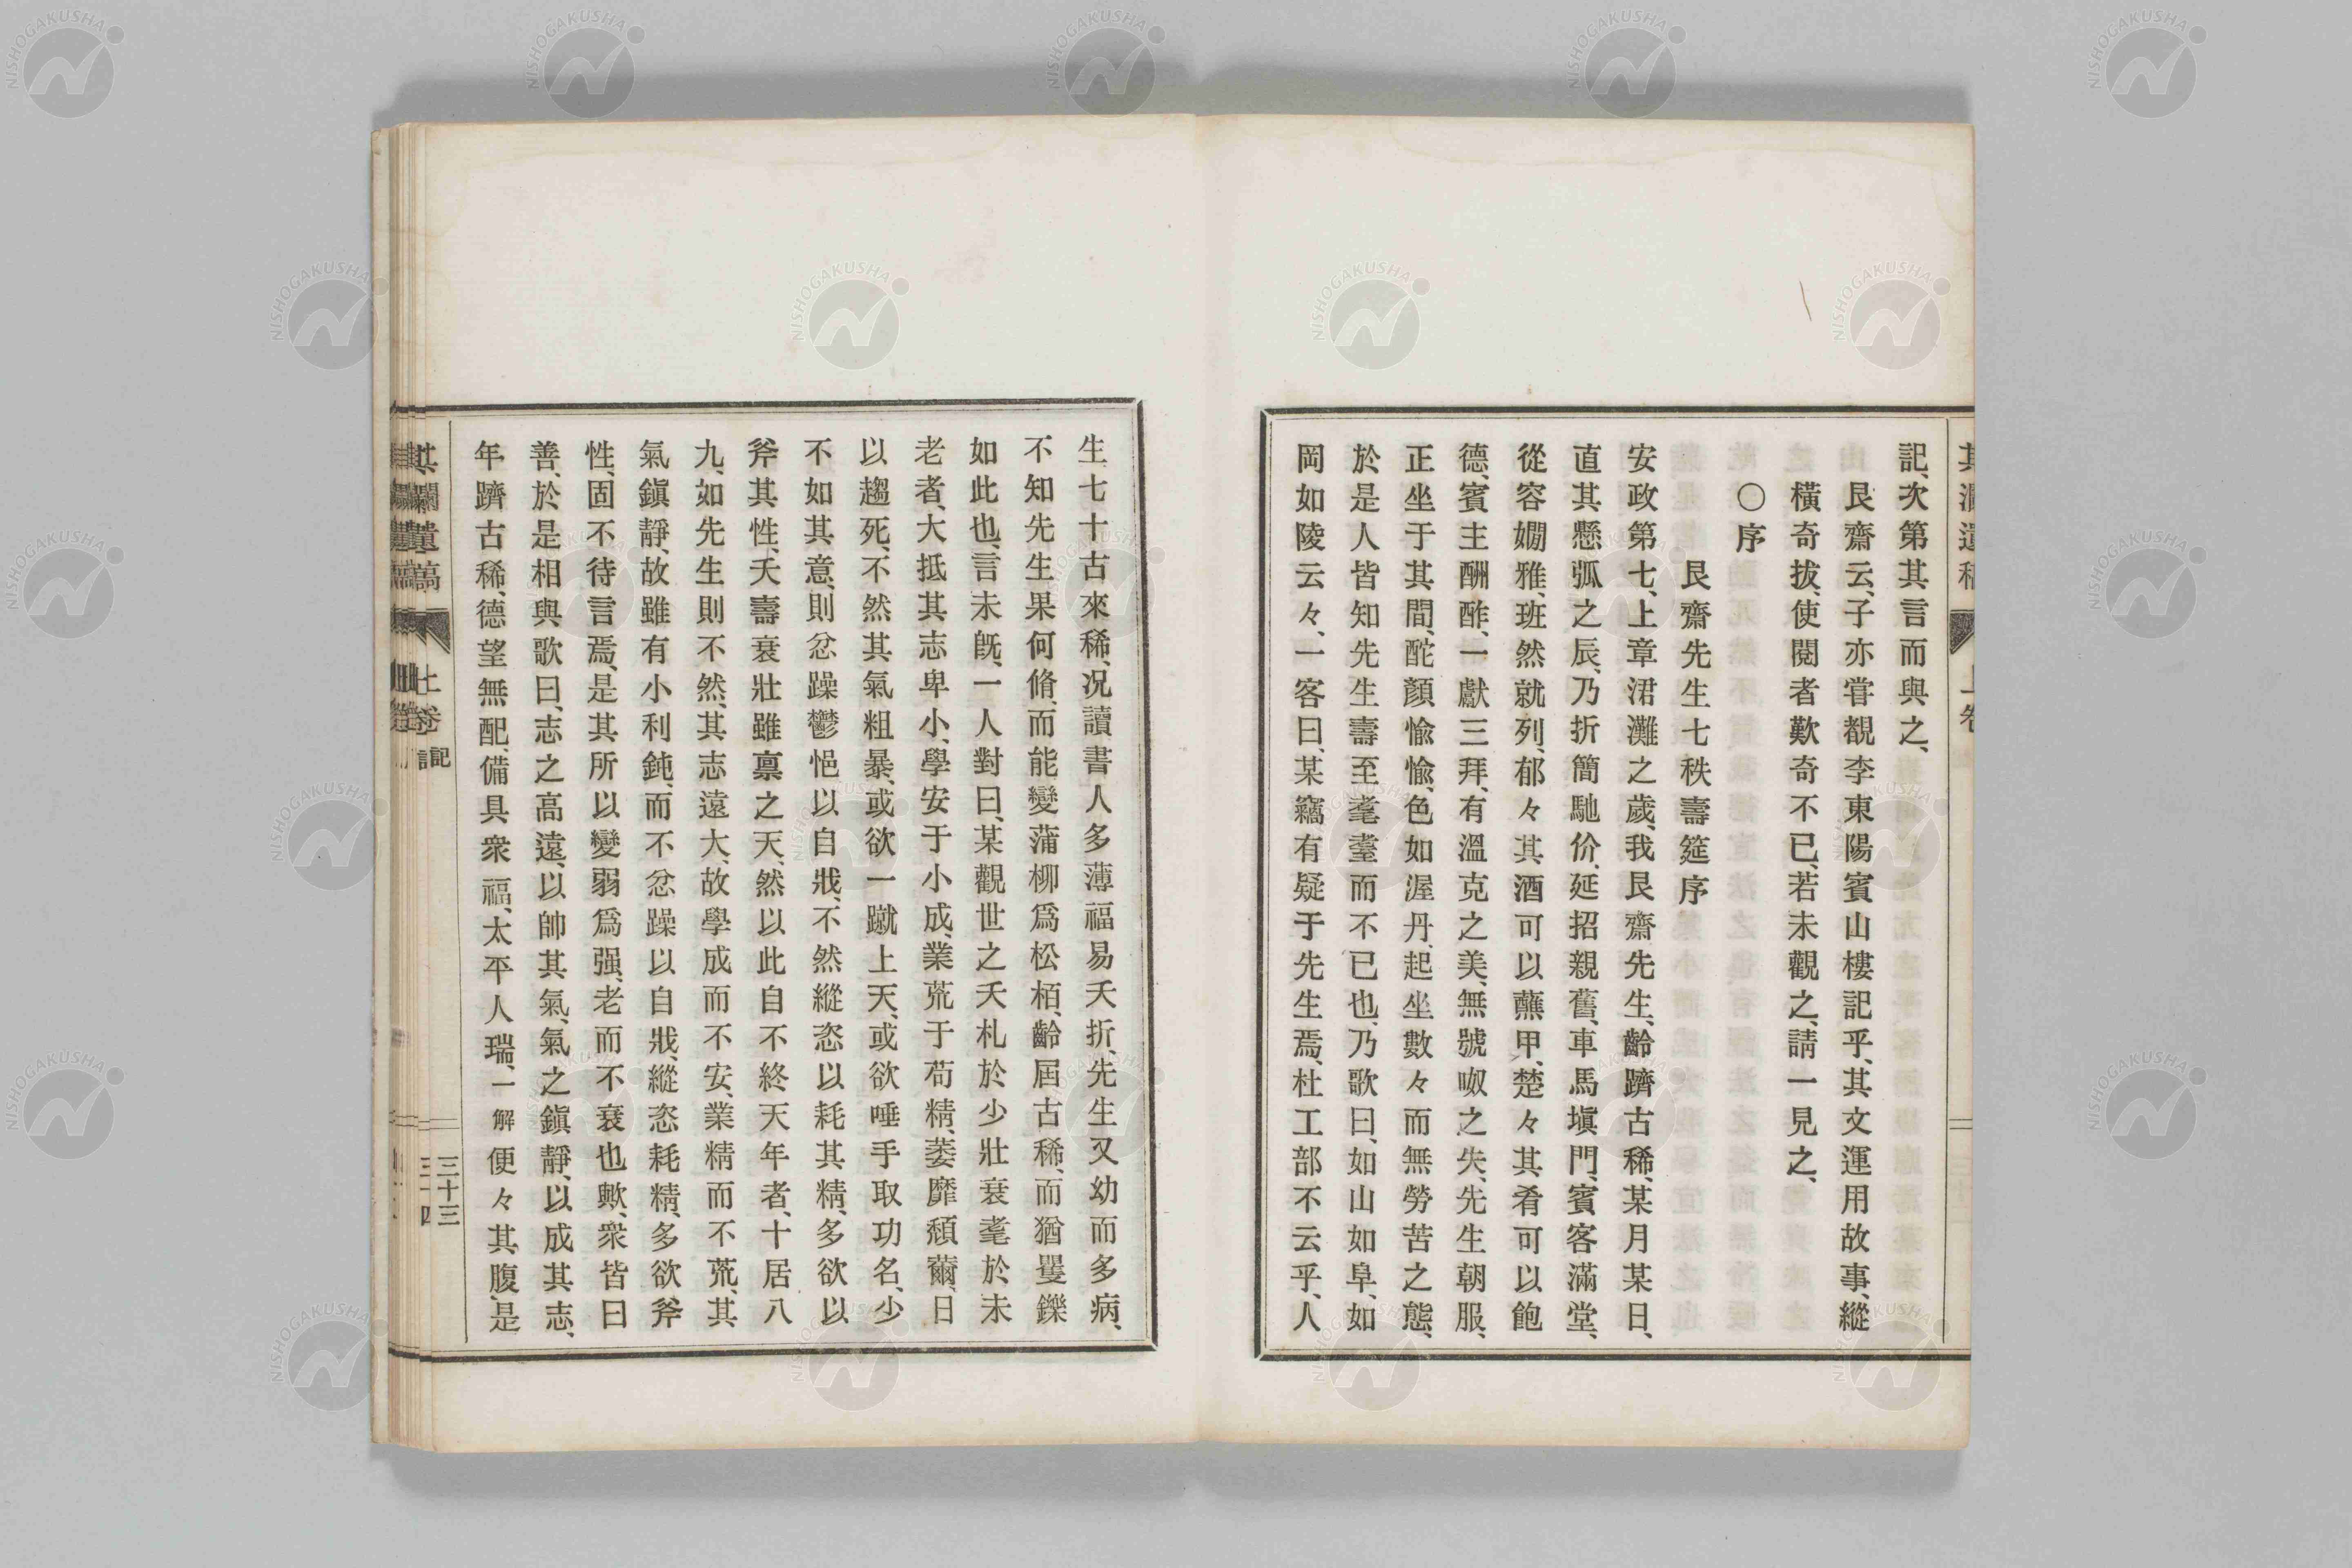 記、次第其言而與之、
艮齋云、子亦甞覩李東陽賓山樓記乎、其文運用故事、縱
橫奇拔、使閱者歎奇不已、若未觀之、請一見之、
〇序
艮齋先生七秩壽筵序
安政第七、上章涒灘之歲、我艮齋先生、齡躋古稀、某月某日、
直其懸弧之辰、乃折簡馳价、延招親舊、車馬塡門、賓客滿堂、
從容嫺雅、班然就列、郁々其酒可以蘸甲、楚々其肴可以飽
德、賓主酬酢、一獻三拜、有溫克之美、無號呶之失、先生朝服、
正坐于其間、酡顏愉愉、色如渥丹、起坐數々而無勞苦之態、
於是人皆知先生壽至耄耋而不已也、乃歌曰、如山如阜、如
岡如陵云々、一客曰、某竊有疑于先生焉、杜工部不云乎、人
生七十古來稀、况讀書人多薄福易夭折、先生又幼而多病、
不知先生果何脩、而能變蒲柳爲松栢、齡屆古稀、而猶矍鑠
如此也、言未既、一人對曰、某觀世之夭札於少壯衰耄於未
老者、大抵其志卑小、學安于小成、業荒于苟精、萎靡頽薾、日
以趨死、不然其氣粗暴、或欲一蹴上天、或欲唾手取功名、少
不如其意、則忿躁鬱悒以自戕、不然縱恣以耗其精、多欲以
斧其性、夭壽衰壯雖禀之天、然以此自不終天年者、十居八
九、如先生則不然、其志遠大、故學成而不安、業精而不荒、其
氣鎭靜、故雖有小利鈍、而不忿躁以自戕、縱恣耗精、多欲斧
性、固不待言焉、是其所以變弱爲强、老而不衰也歟、衆皆曰
善、於是相與歌曰、志之高遠、以帥其氣、氣之鎭靜、以成其志、
年躋古稀、德望無配、備具衆福、太平人瑞、一解便々其腹、是
其瀾遺稿 上卷 記 三十三
NISHOGAKUSHA